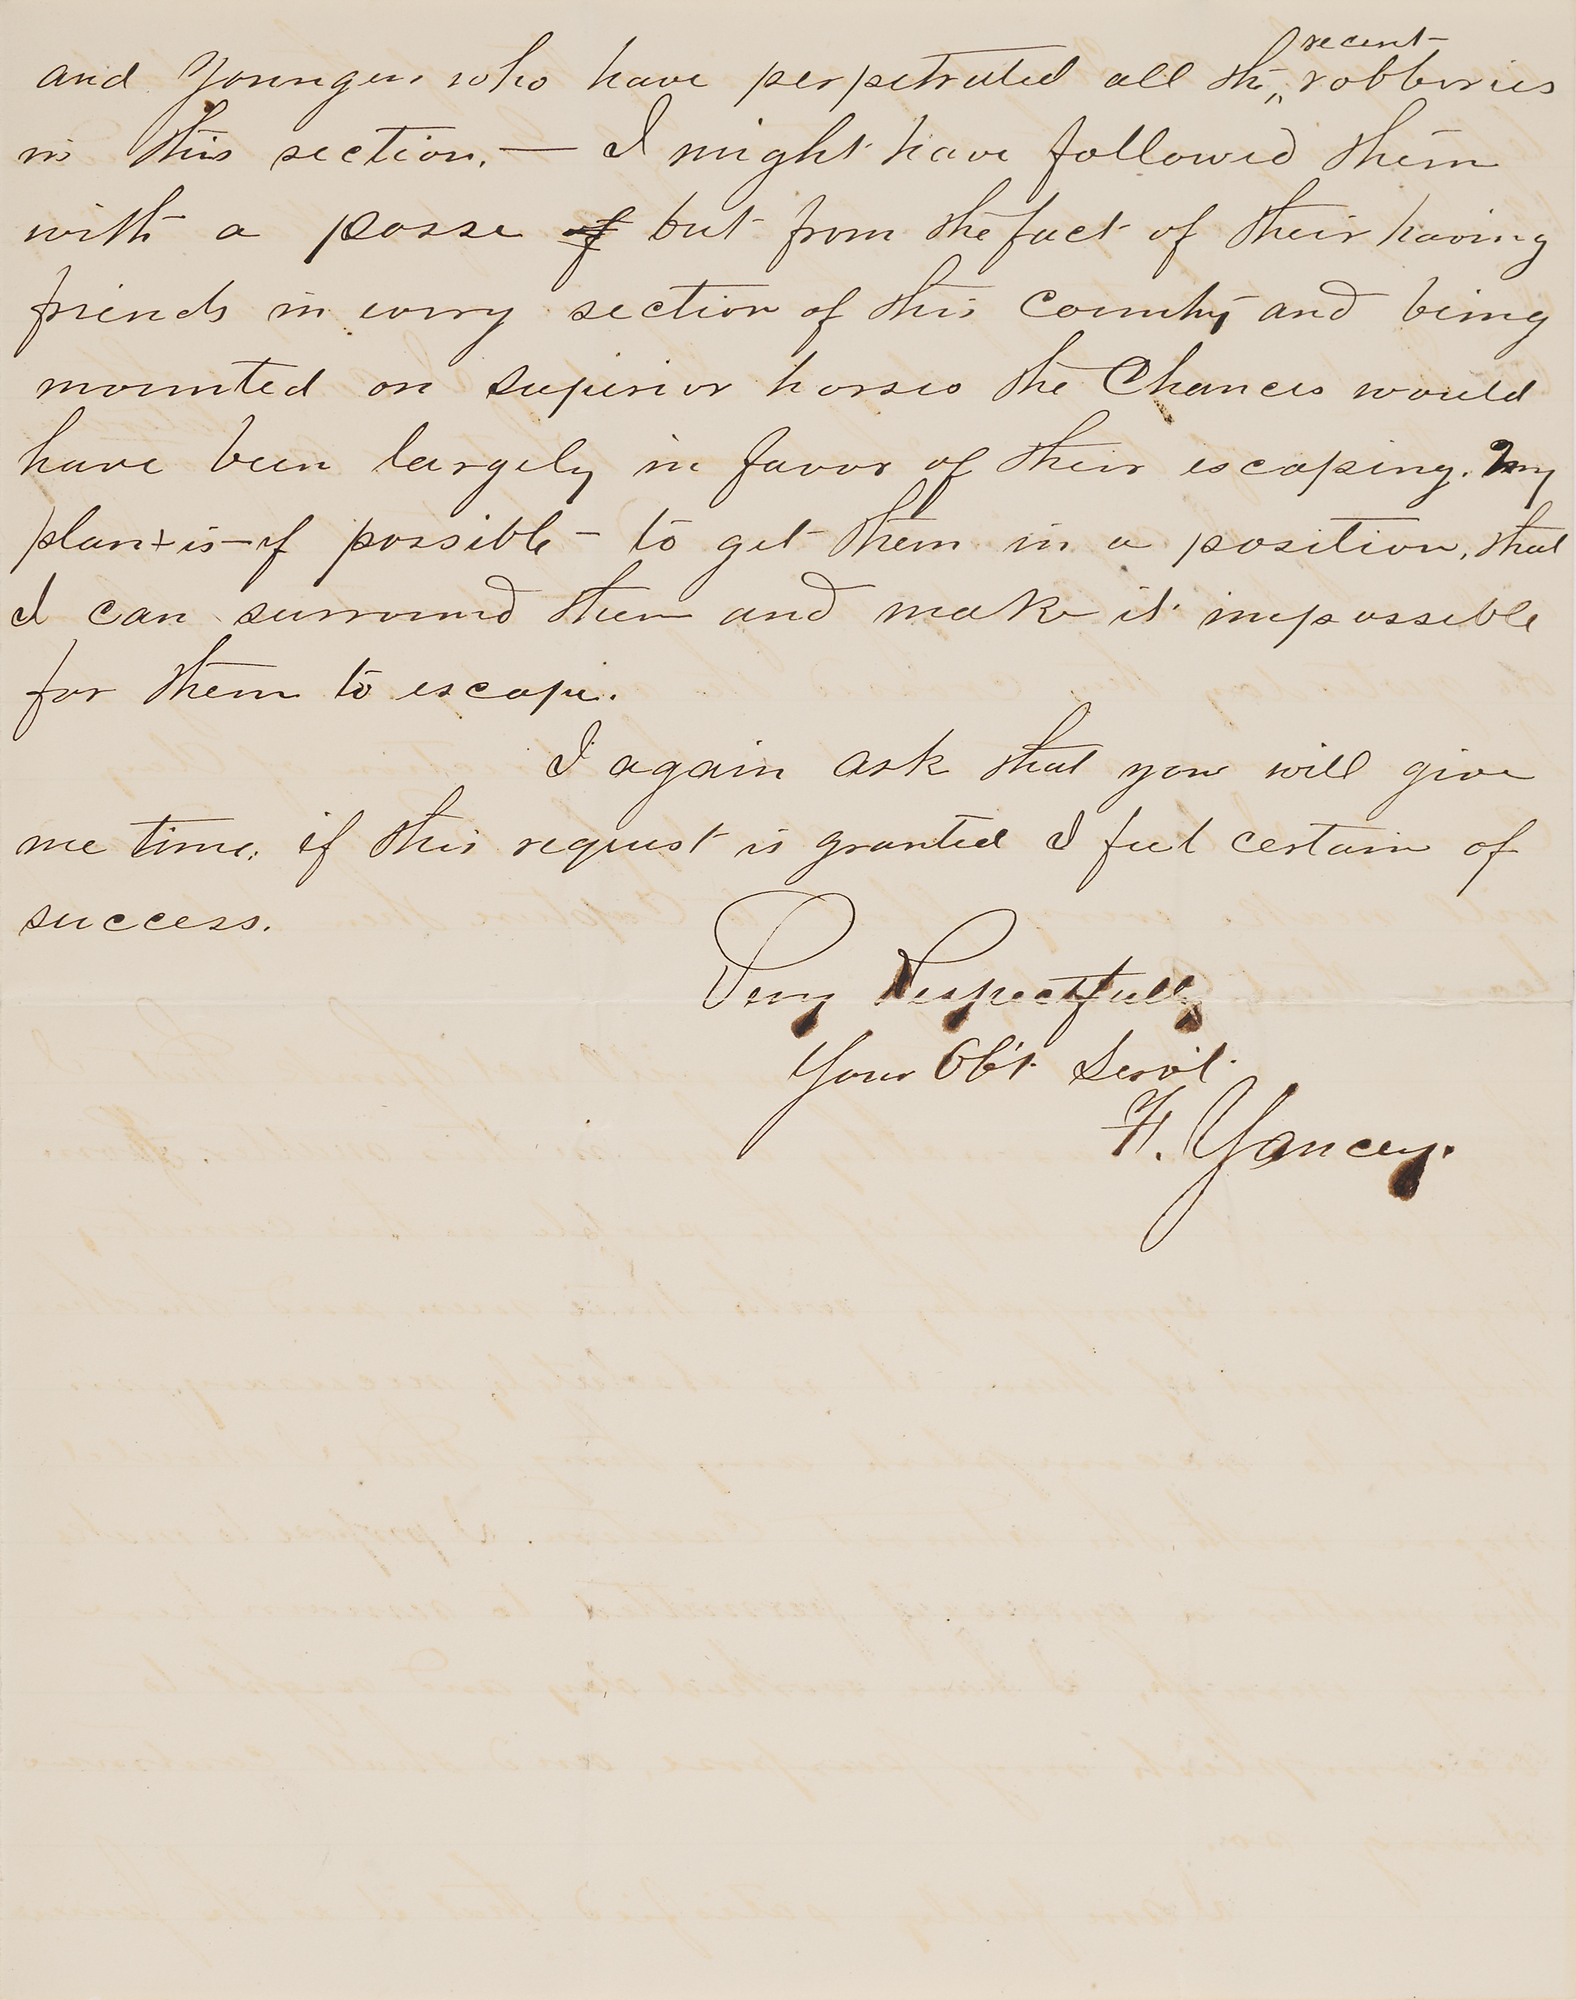 and Youngers who have perpetrated all the recent robberies
in this section. — I might have followed them
with a posse of but from the fact of their having
friends in every section of this County and being
mounted on superior horses the Chances would
have been largely in favor of their escaping. My
plan + is - if possible - to get them in a position, that
I can surround them and make it impossible
for them to escape.
I again ask that you will give
me time. if this request is granted I feel certain of
success.
Very Respectfully
Your Obt Servt.
F. Yancey.